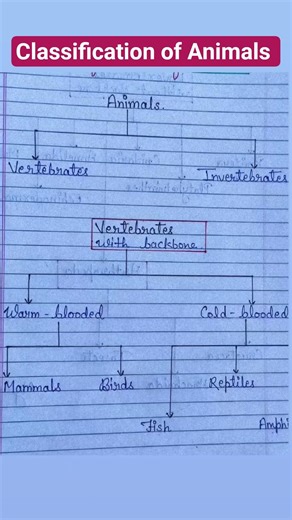 Classification of Animals
Animals.
Vertebrates
Invertebrates
Vertebrates
with backbone.
Warm-blooded
Cold-blooded
Mammals
Birds
Reptiles
Fish
Amphi